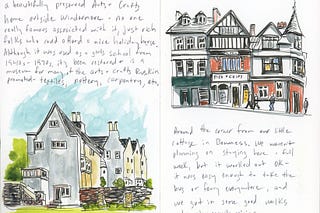 a beautifully preserved Arts + Crafts
home outside Windermere - no one
really famous associated with it, just rich
folks who could afford a nice holiday house.
Although it was used as a girls school from
it's been restored + is a
museum for many of the Arts + Crafts Ruskin
promoted - textiles, pottery, carpentry, etc
Around the corner from our little
cottage in Bowness. We weren't
planning on staying here - full
week, but it worked out OK -
it was easy enough to take the
bus or ferry everywhere, and
we got in some good walks